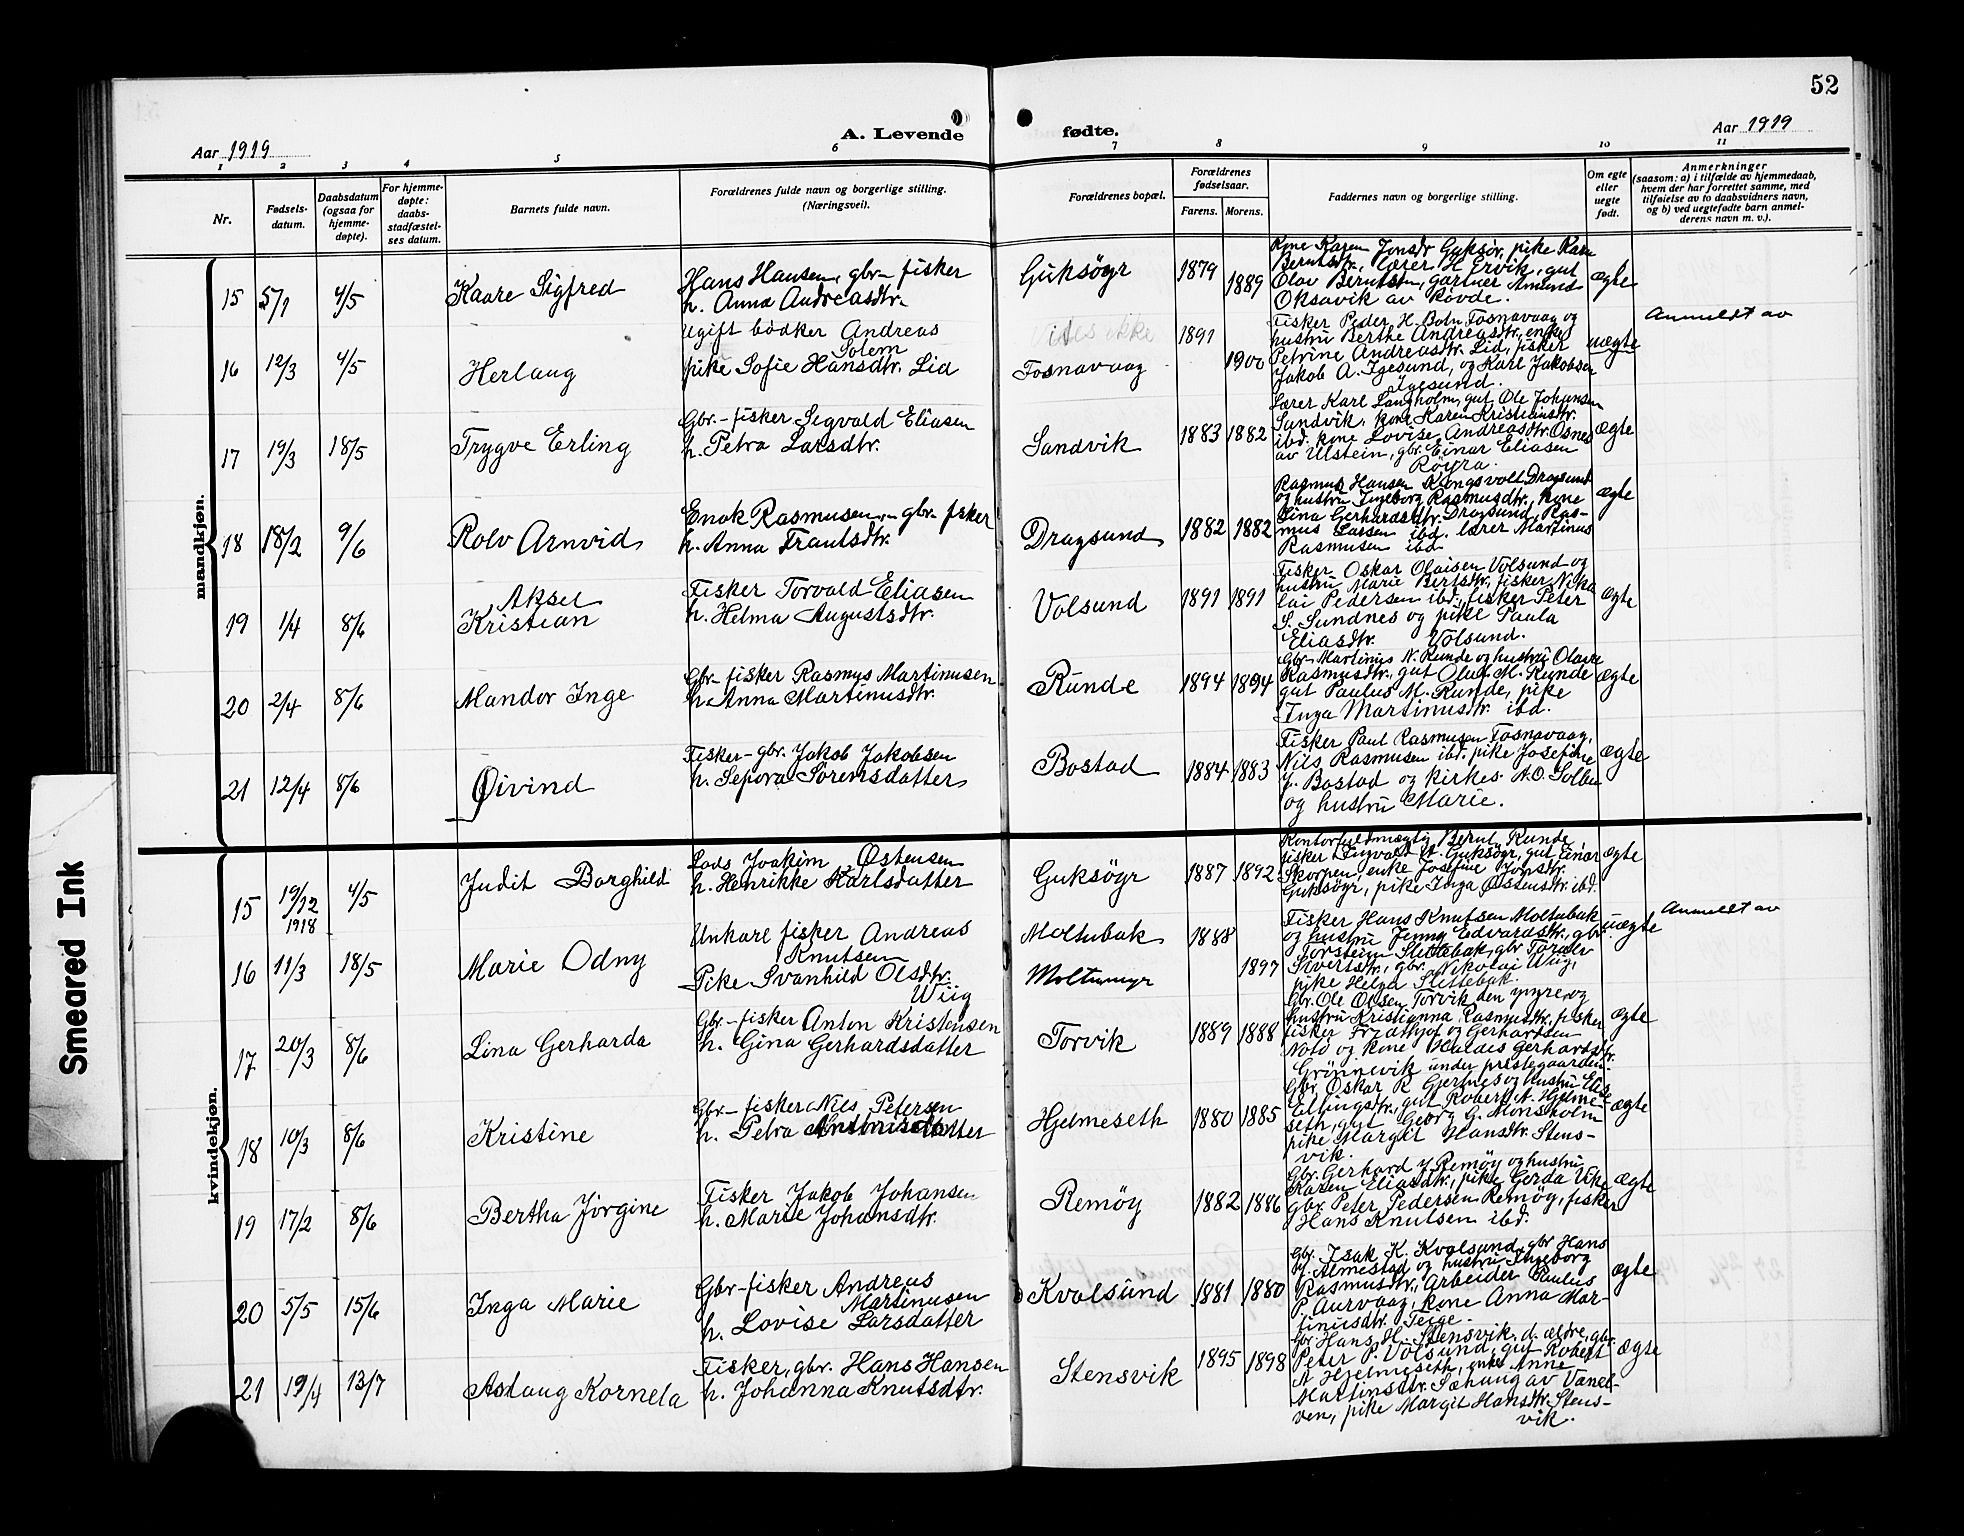 52
A. Levende fødte.
Aar 1919
Aar 1919
1 2 3 4 5 6 7 8 9 10 11
Nr.
Fødsels-
datum.
Daabsdatum
(ogsaa for
hjemme-
døpte).
For hjemme-
døpte:
daabs-
stadfæstel-
ses datum.
Barnets fulde navn.
Forældrenes fulde navn og borgerlige stilling.
(Næringsvei).
Forældrenes bopæl.
Forældrenes
fødselsaar.
Farens. Morens.
Faddernes navn og borgerlige stilling.
Om egte
eller
uegte
født.
Anmerkninger
(saasom: a) i tilfælde av hjemmedaab,
hvem der har forrettet samme, med
tilføielse av to daabsvidners navn,
og b) ved uegtefødte barn anmel-
derens navn m. v.).
mandkjøn.
15 5/1 4/5 Kaare Sigfred
Hans Hansen, gbr-fisker
h. Anna Andreasdtr.
Guksöyr 1879 1889
Kone Karen Jonsdr Guksör, pike Kare
Berntsdtr., lærer H. Ervik, gut
Olav Berntsen, gartner Amund
Oksavik av Rövde.
ægte
16 12/3 4/5 Herlaug
Ugift bödker Andreas
Solem
pike Sofie Hansdtr. Lid
Vides ikke
Fosnavaag 1891 1900
Fisker Peder H. Botn Fosnavaag og
hustru Berthe Andreasdtr, enke
Petrine Andreasdtr. Lid, fisker
Jakob A. Igesund, og Karl Jakobsen
Igesund.
uægte
Anmeldt av
17 19/3 18/5 Trygve Erling
Gbr.-fisker Segvald Eliasen
h. Petra Larsdtr.
Sandvik 1883 1882
Lærer Karl Langholm, gut Ole Johansen
Sandvik, kone Karen Kristiansdtr.
ibd. kone Lovise Andreasdtr Osnes
av Ulstein, gbr. Einar Eliasen
Röyra.
ægte
18 18/2 9/6 Rolv Arnvid
Enok Rasmusen, gbr-fsker
h. Anna Frantsdtr.
Dragsund 1882 1882
Rasmus Hansen Kongsvolt Dragsund
og hustru Ingeborg Rasmusdtr., kone
Lina Gerhardsdtr. Dragsund, Ras-
mus Larsen ibd. lærer Martinus
Rasmusen ibd
ægte
19 1/4 8/6 Aksel
Kristian
Fisker Torvald Eliasen
h. Helma Augustsdtr.
Volsund 1891 1891
Fisker Oskar Olaisen Volsund og
hustru Marie Bertsdtr, fisker Niko
lai Pedersen ibd., fisker Peter
S. Sundnes og pike Paula
Eliasdtr. Volsund.
ægte
20 2/4 8/6 Mandor Inge
Gbr-fisker Rasmus Martinusen
h. Anna Martinusdtr.
Runde 1894 1894
Gbr. Martinus N. Runde og hustru Olave
Rasmusdtr., gut Oluf M. Runde
gut Paulus M. Runde, pike
Inga Martinusdtr ibd.
ægte
21 12/4 8/6 Øivind
Fisker-gbr. Jakob Jakobsen
h. Sepora Sörensdatter
Bostad 1884 1883
Fisker Paul Rasmusen Fosnavaag,
Nils Rasmusen ibd. pike Josefine
J. Bostad og kirkes. A.O. Solbu
og hustru Marie.
ægte
kvindekjøn.
15 19/12 1918 4/5 Judit Borghild
Lods Joakim Østensen
h. Henrikke Karlsdatter
Guksöyr 1887 1892
Kontorfuldmægtig Bernt Runde,
fisker Ingvald A. Guksöyr, gut Einar
Skorpen, enke Josefine Jonsdtr.
Guksöyr, pike Inga Østensdtr ibd.
ægte
16 11/3 18/5 Marie Odny
Unkarl fisker Andreas
Knutsen
Pike Svanhild Olsdtr.
Wiig
Moltubak 1888
Moltumyr 1897
Fisker Hans Knutsen Moltubak
og hustru Jenny Edvardstr., gbr.
Torstein Slettebak, gbr Tordelv
Sivertstr., gbr. Nikolai Wiig,
pike Helga Slettebak.
uægte
Anmeldt av
17 20/3 8/6 Lina Gerharda
Gbr-fisker Anton Kristensen
h. Gina Gerhardsdatter
Torvik 1889 1888
Gbr. Ole Olsen Torvik den yngre, og
hustru Kristianna Rasmusdtr, fisker
fisker Fridthjof og Gerhardsen
Notö og kone Valdis Gerhardsdtr.
Grönnevik under prestegaarden.
ægte
18 10/3 8/6 Kristine
Gbr-fisker Nils Petersen
h. Petra
Hjelmeseth 1880 1885
Gbr. Oskar R Gjerdnes og hustru Elise
Ellingsdtr, gut Robert N. Hjelme-
seth, gut Georg G. Monsholm
pike Margit Hansdtr. Stens-
vik.
ægte
19 17/2 8/6 Bertha Jörgine
Fisker Jakob Johansen
h. Marie Johansdtr.
Remöy 1882 1886
Gbr. Gerhard J Remöy og hustru
Karen Eliasdtr., pike Gerda Vike
gbr. Peter Pedersen Remöy, fisker
Hans Knutsen ibd.
ægte
20 5/5 15/6 Inga Marie
Gbr-fisker Andreas
Martinusen
h. Lovise Larsdatter
Kvalsund 1881 1880
Gbr. Isak K. Kvalsund, gbr Hans
Almestad og hustru Ingeborg
Rasmusdtr., arbeider Paulus
P. Aurvaag, kone Anna Mar-
tinusdtr. Teige.
ægte
21 19/4 13/7 Aslaug Kornela
Fisker, gbr. Hans Hansen
h. Johanna Knutsdtr.
Stensvik 1895 1898
Gbr. Hans H. Stensvik d. ældre, gbr.
Peter P. Volsund, gut Robert
N Hjelmeseth, enke Anne
Martinsdtr. Sæhaug av Vanel-
ven, pike Margit Hansdtr. Stens-
vik.
ægte
Smeared Ink